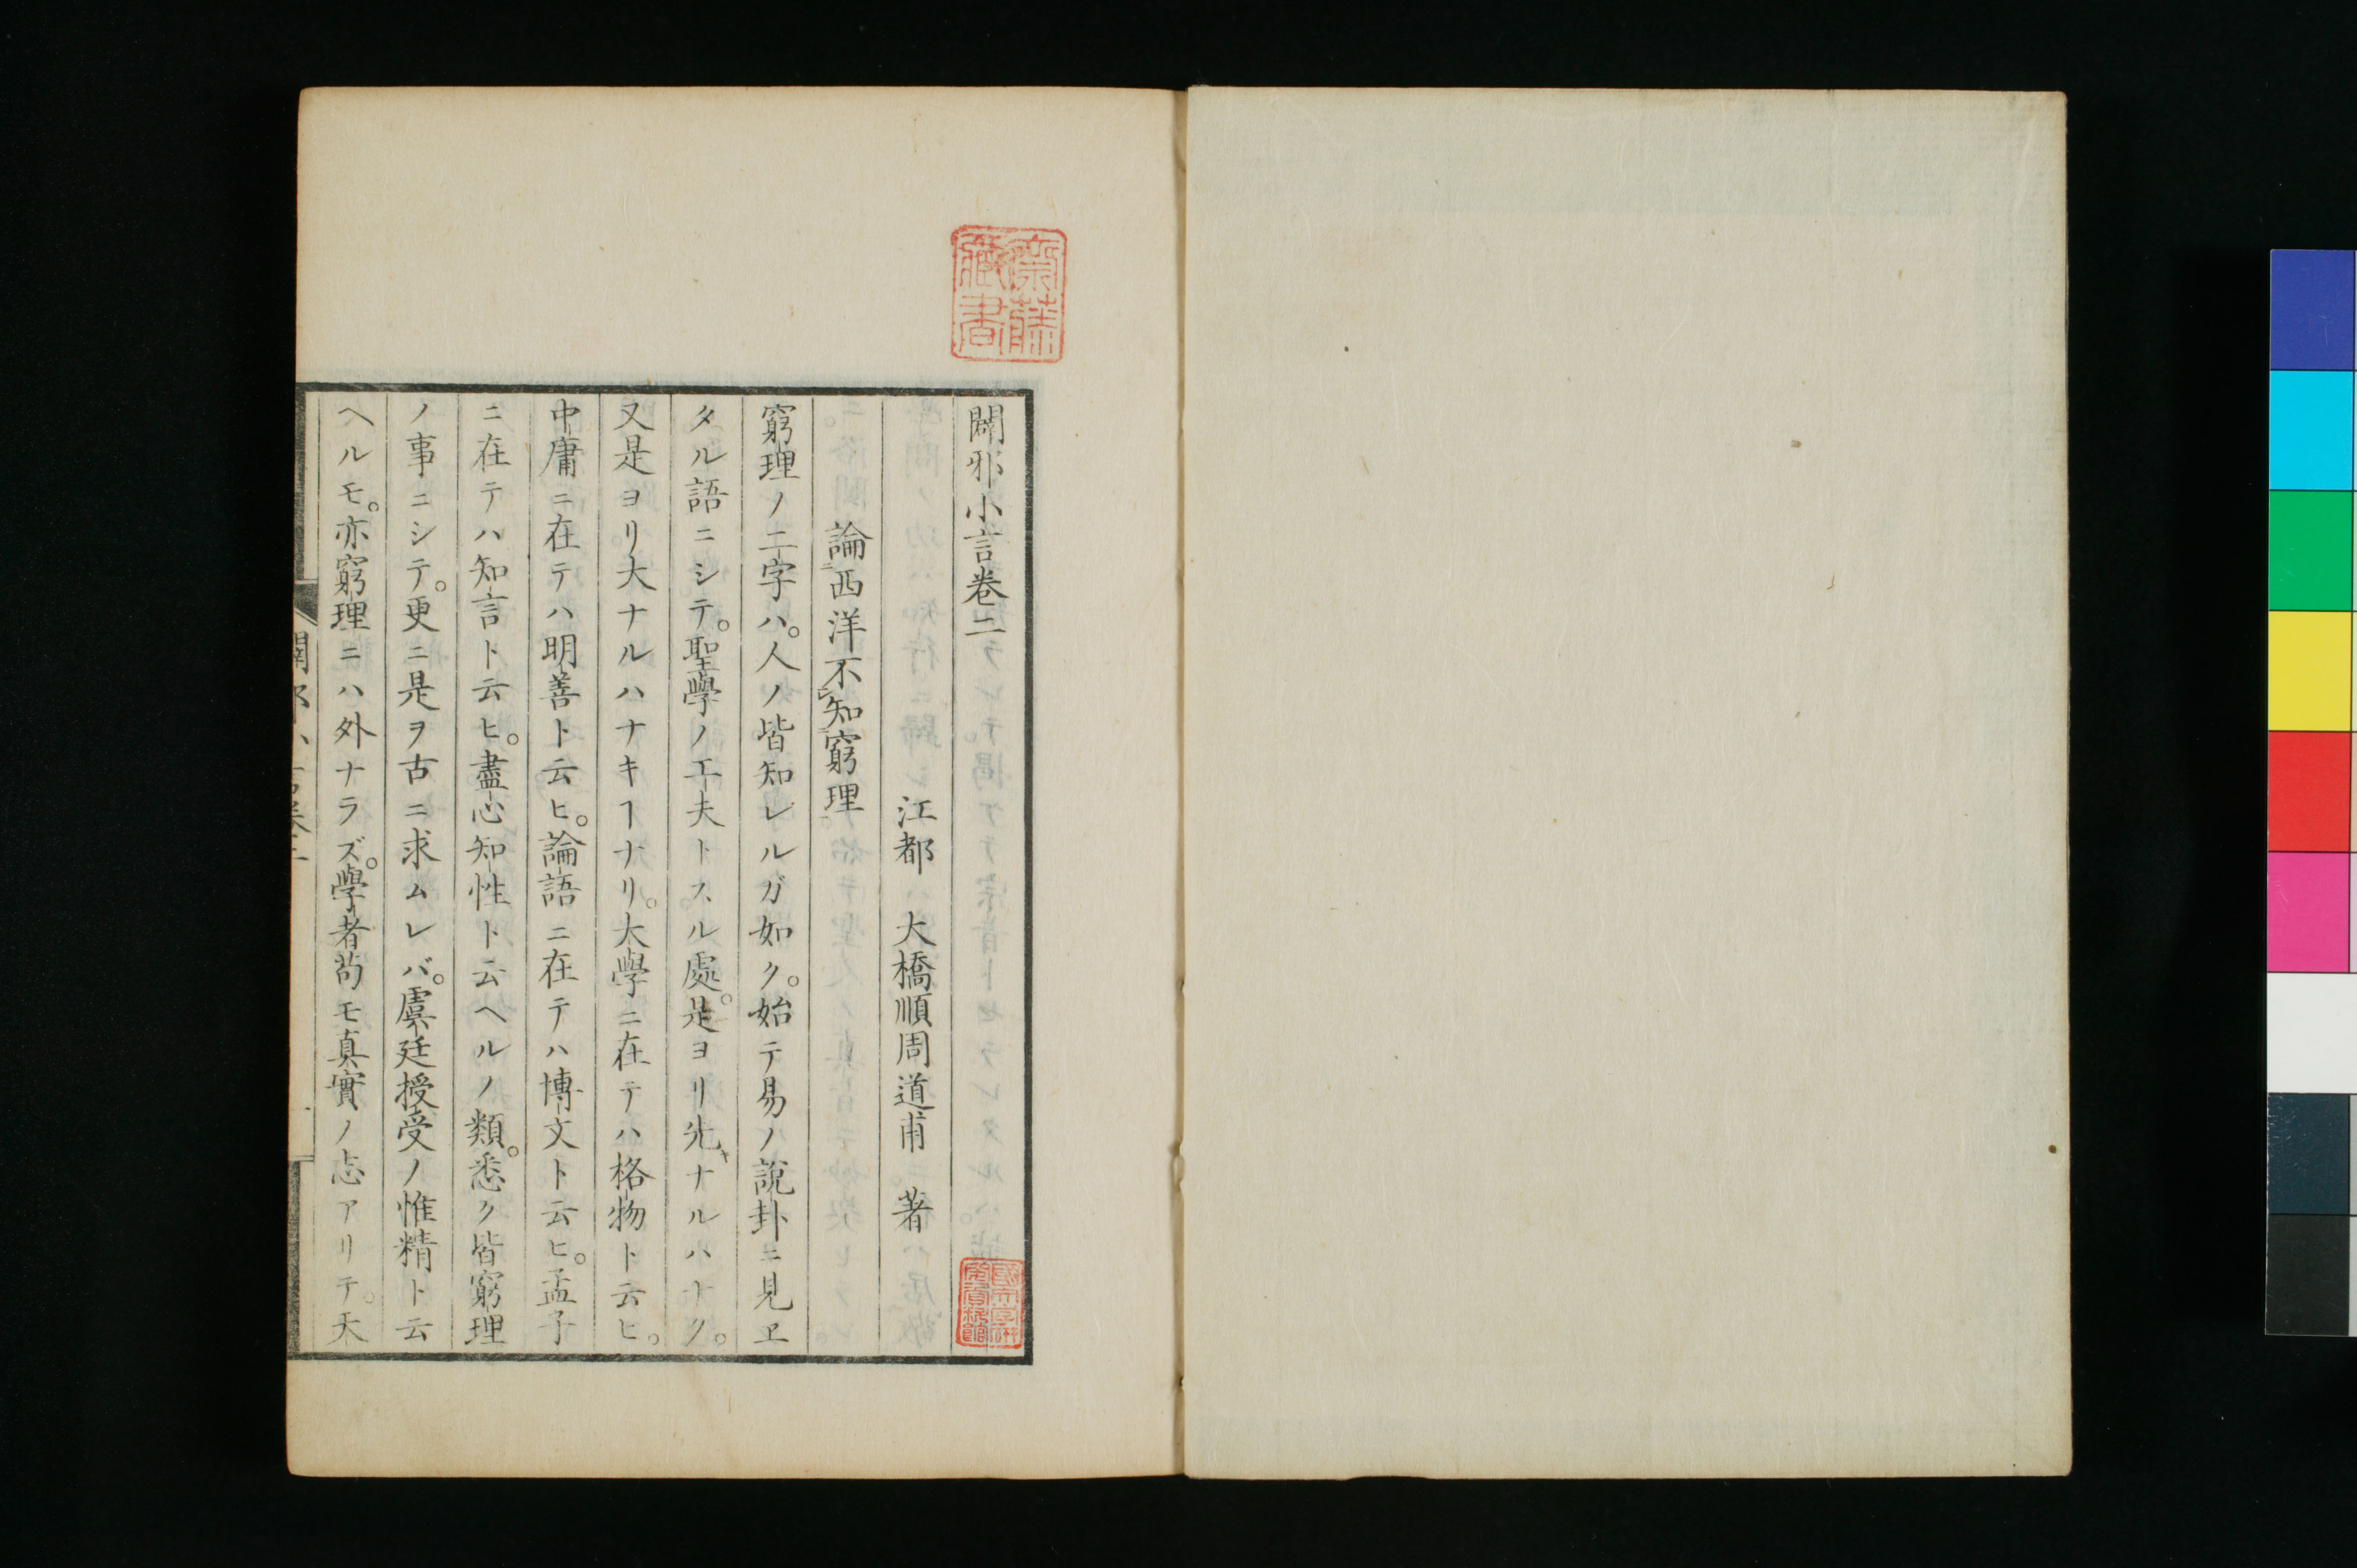 闢邪小言卷二
江都　大橋順周道甫　著
論㆓西洋不㆑知㆓窮理㆒
窮理ノ二字ハ。人ノ皆知レルガ如ク。始テ易ノ說卦ニ見ヱ
タル語ニシテ。聖學ノ工夫トスル處。是ヨリ先ナルハナク。
又是ヨリ大ナルハナキヿナリ。大學ニ在テハ格物ト云ヒ。
中庸ニ在テハ明善ト云ヒ。論語ニ在テハ博文ト云ヒ。孟子
ニ在テハ知言ト云ヒ。盡心知性ト云ヘルノ類。悉ク皆窮理
ノ事ニシテ。更ニ是ヲ古ニ求ムレバ。虞廷授受ノ惟精ト云
ヘルモ。亦窮理ニハ外ナラズ。學者苟モ真實ノ志アリテ。天
齋藤藏書